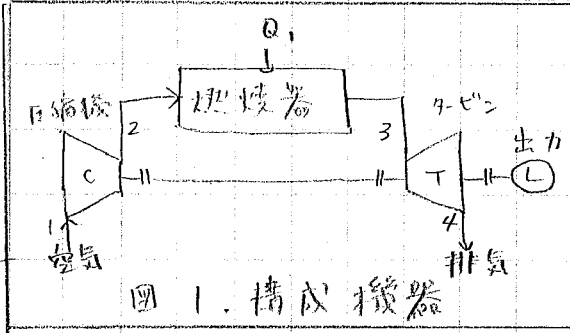 Q₁
圧縮機
燃焼器
タービン
2
3
出力
C
T
L
1
4
空気
排気
図 1. 構成機器